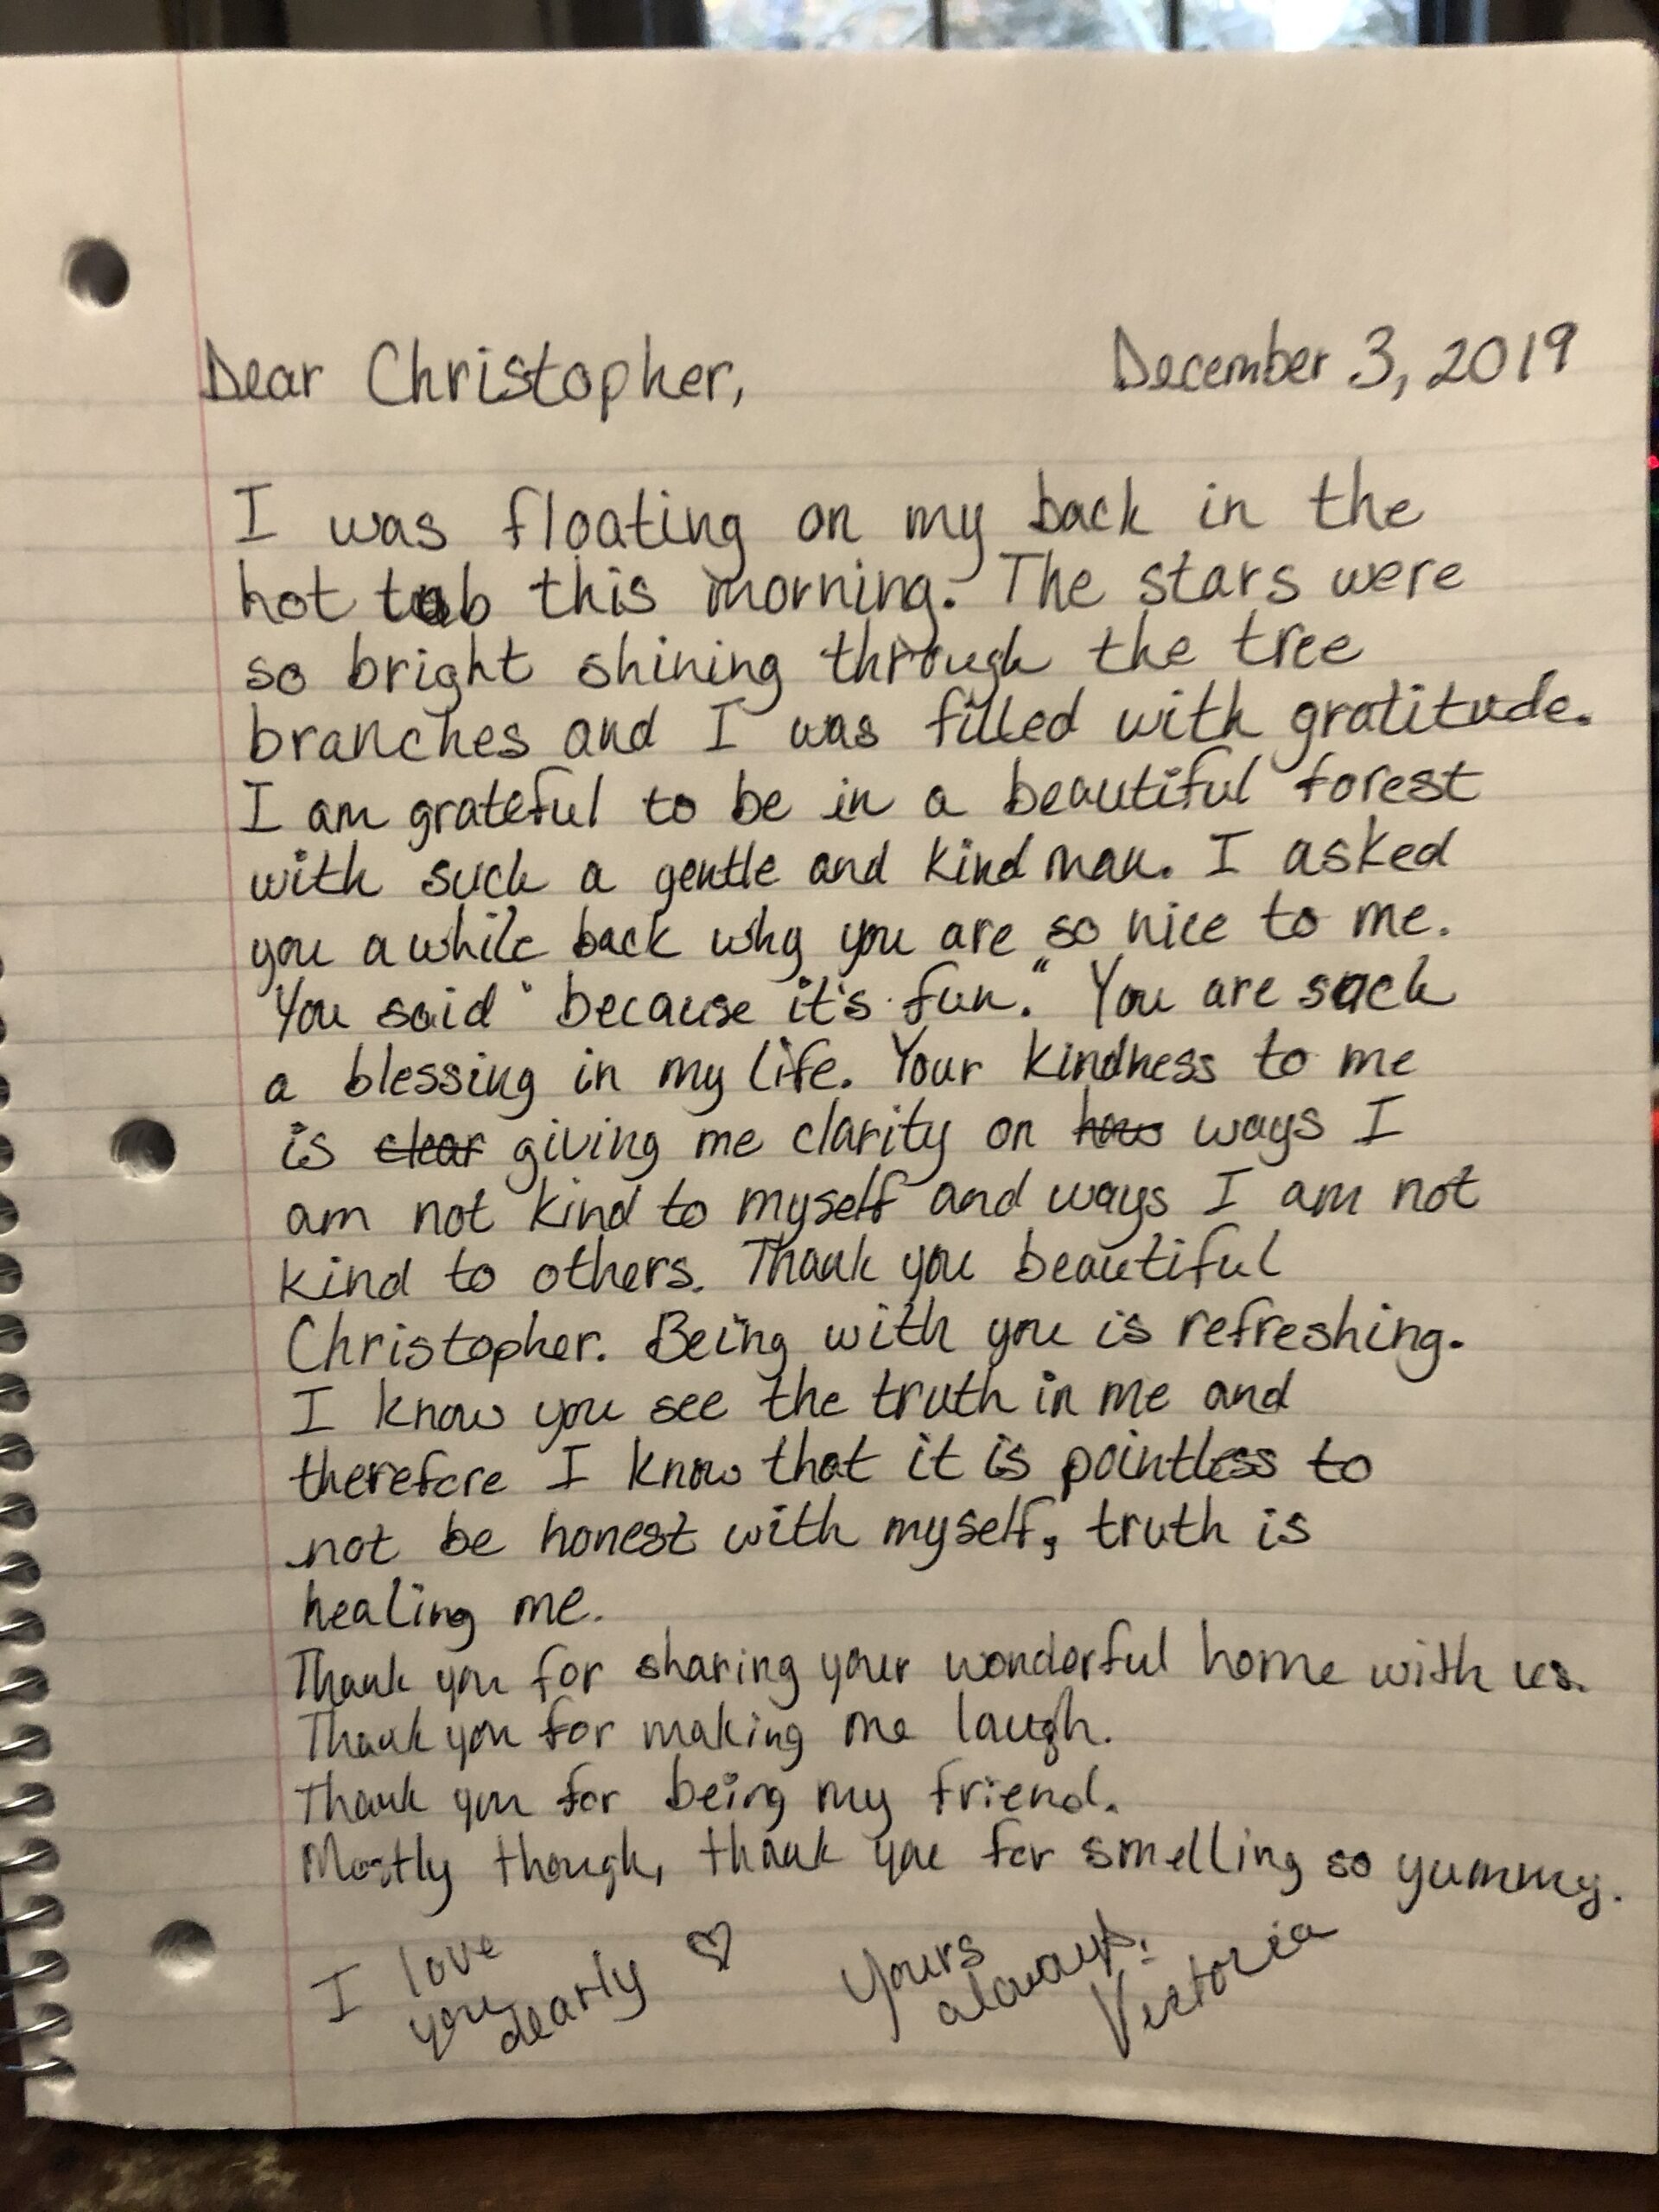 Dear Christopher, December 3, 2019
I was floating on my back in the
hot tub this morning. The stars were
so bright shining through the tree
branches and I was filled with gratitude.
I am grateful to be in a beautiful forest
with such a gentle and kind man. I asked
you awhile back why you are so nice to me.
You said "because it's fun." You are such
a blessing in my life. Your kindness to me
is clear giving me clarity on how ways I
am not kind to myself and ways I am not
kind to others. Thank you beautiful
Christopher. Being with you is refreshing.
I know you see the truth in me and
therefore I know that it is pointless to
not be honest with myself, truth is
healing me.
Thank you for sharing your wonderful home with us.
Thank you for making me laugh.
Thank you for being my friend.
Mostly though, thank you for smelling so yummy.
I love
you dearly ♡
Yours
always,
Victoria